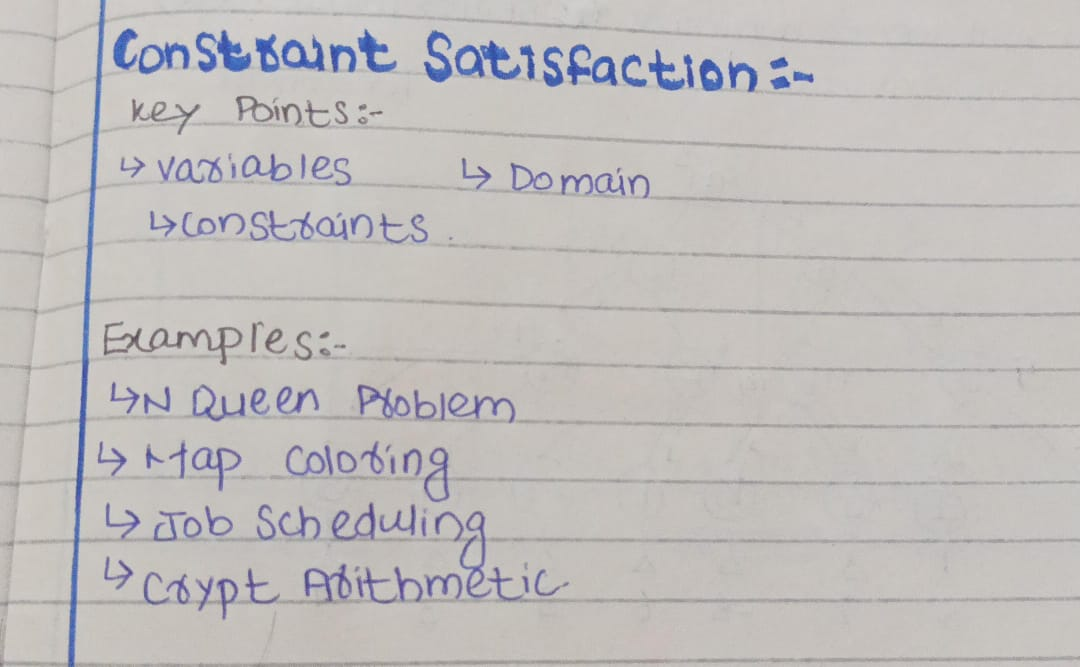 Constraint Satisfaction :-
key Points :-
↳ variables ↳ Domain
↳ constraints .
Examples :-
↳ N Queen Problem
↳ Map coloring
↳ Job Scheduling
↳ Crypt Arithmetic